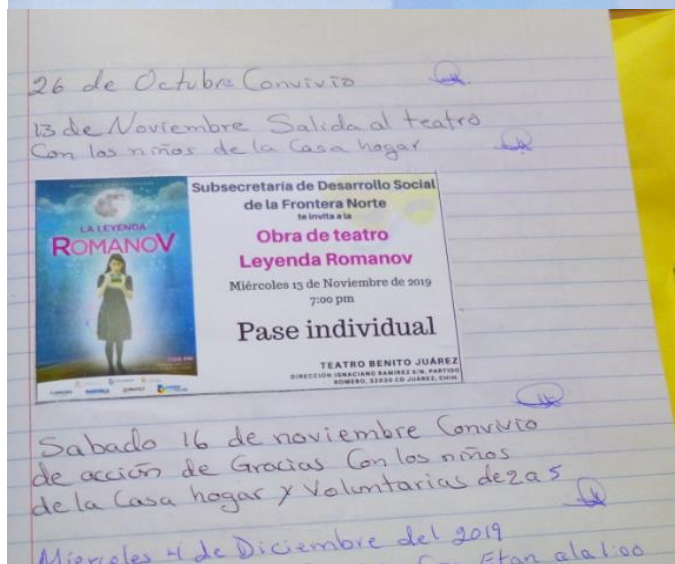 26 de Octubre Convivio
13 de Noviembre Salida al teatro
Con los niños de la Casa hogar
LA LEYENDA
ROMANOV
Subsecretaría de Desarrollo Social
de la Frontera Norte
te invita a la
Obra de teatro
Leyenda Romanov
Miércoles 13 de Noviembre de 2019
7:00 pm
Pase individual
TEATRO BENITO JUÁREZ
DIRECCIÓN IGNACIANO RAMÍREZ S/N, PARTIDO
ROMERO, 32030 CD JUÁREZ, CHIH.
Sabado 16 de noviembre Convivio
de acción de Gracias Con los niños
de la Casa hogar y Voluntarias de 2 a 5
Miercoles 4 de Diciembre del 2019
Etan a la 1:00